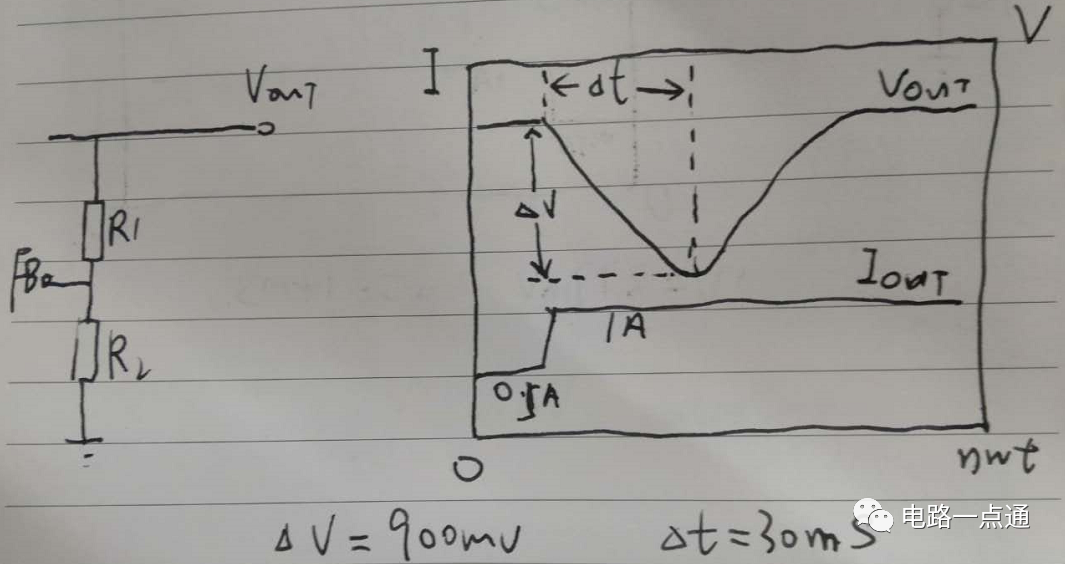 VOUT
R1
FB
R2
I
V
Δt
VOUT
ΔV
IOUT
1A
0.5A
0
nwt
ΔV=900mV
Δt=30mS
电路一点通